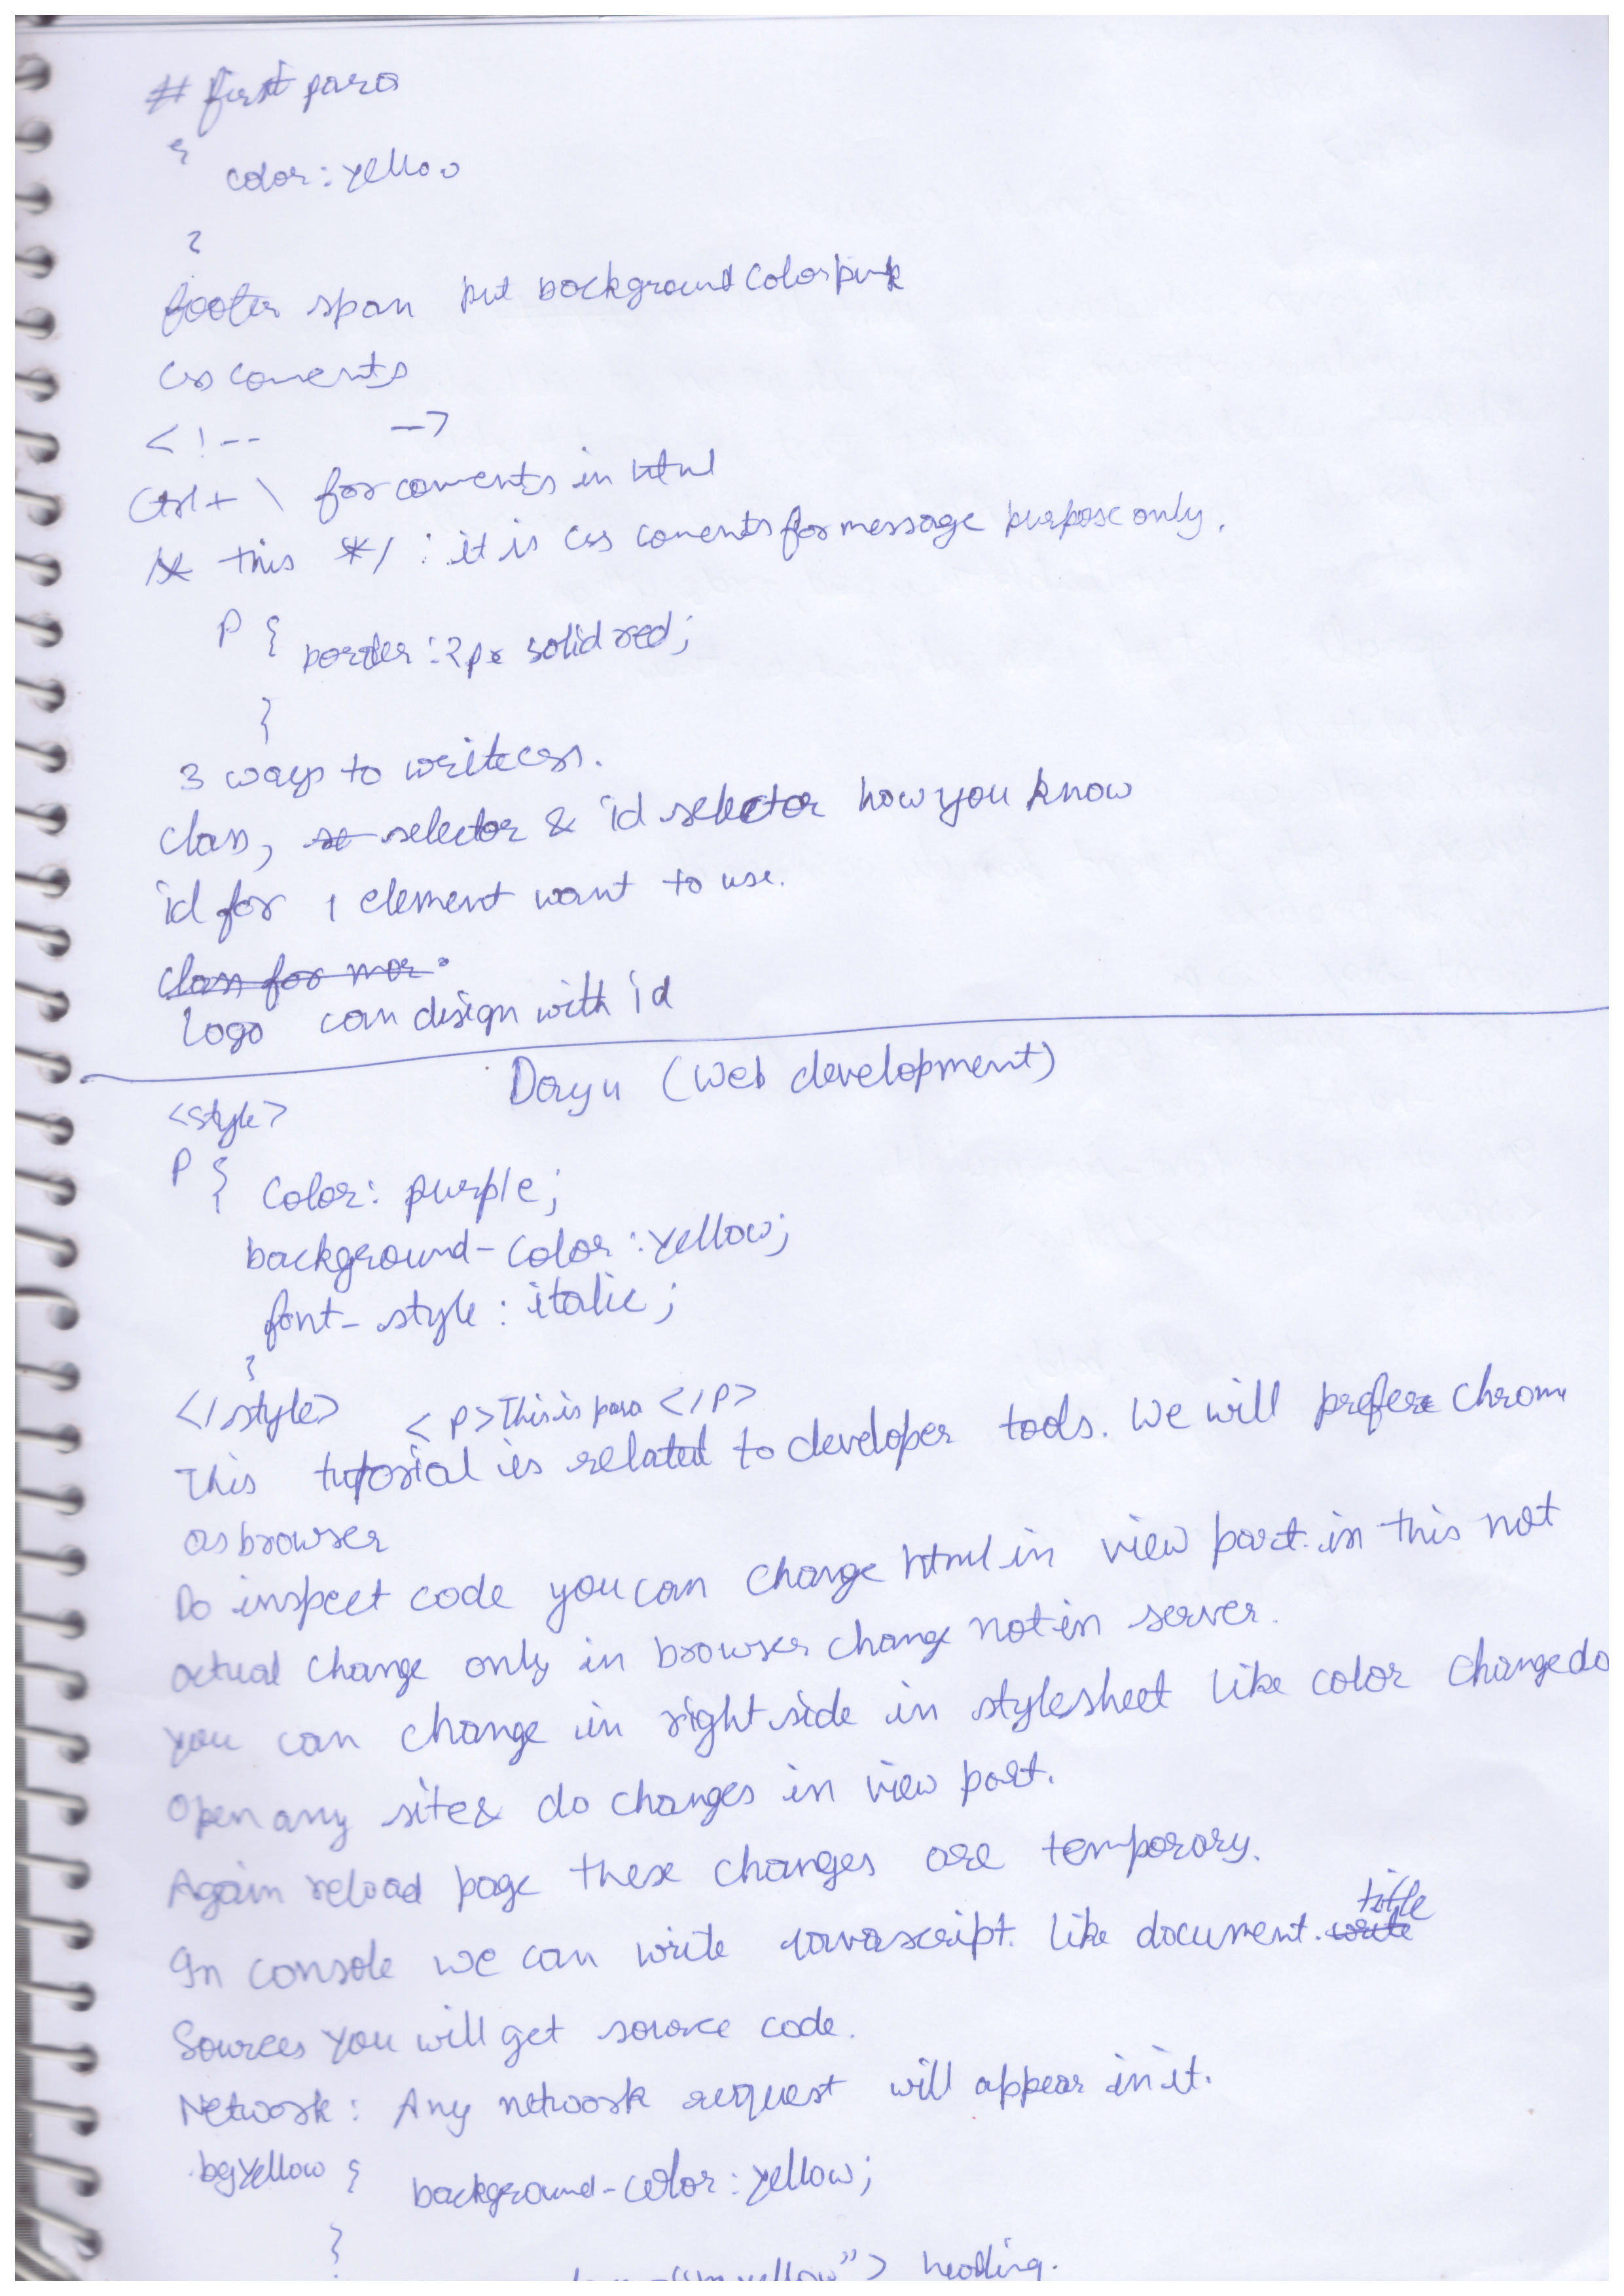 # first para
{
color: yellow
}
footer span put background color pink
css coments
<!-- -->
Ctrl + \ for coments in html
/* this */ : it is css coments for message purpose only.
P { border : 2px solid red;
}
3 ways to write css.
class, se selector & id selector how you know
id for 1 element want to use.
class for mor
Logo can design with id
Day 4 (Web development)
<style>
P { color: purple;
background-color : yellow;
font-style : italic ;
}
</style> <P> This is para </P>
This tutorial is related to developer tools. We will prefer chrome
as browser
Do inspect code you can change html in view part. in this not
actual change only in browser change not in server.
you can change in right side in stylesheet like color change do
Open any site & do changes in view part.
Again reload page these changes are temporary.
In console we can write Javascript. like document. write title
Sources you will get source code.
Network : Any network request will appear in it.
.bgyellow { background-color : yellow;
}
yellow"> heading.